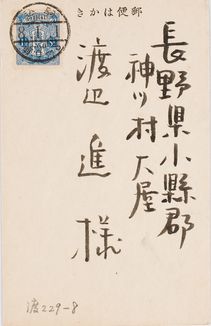 郵便はかき
長野県小縣郡
神川村大屋
渡辺進様
渡229-8